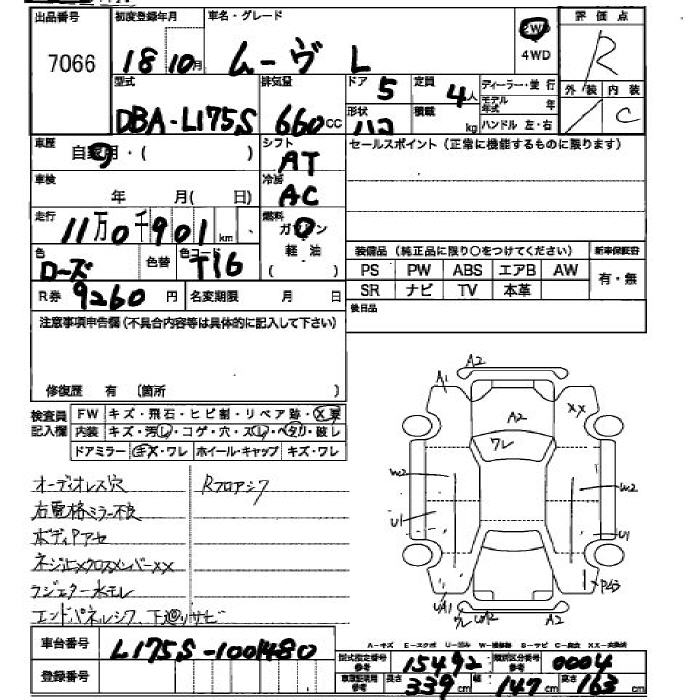 出品番号 初度登録年月 車名・グレード 評価点
7066 18 10月 ムーヴ L 2W 4WD R
型式 排気量 ドア 5 定員 4人 ディーラー・並行 外装 内装
モデル年式 年 C
DBA-L175S 660cc 形状 積載 kg ハンドル 左・右
車歴 シフト セールスポイント(正常に機能するものに限ります)
・( ) AT
車検 冷房
年 月( 日) AC
走行 燃料
11万0千901km ガソリン
色 色替 色コード 軽油 装備品(純正品に限り○をつけてください) 新車保証書
ローズ T16 ( ) PS PW ABS エアB AW 有・無
R券 9260円 名変期限 月 日 SR ナビ TV 本革
注意事項申告欄(不具合内容等は具体的に記入して下さい) 後日品
修復歴 有 (箇所 )
検査員 FW キズ・飛石・ヒビ割・リペア跡・X要
記入欄 内装 キズ・汚レ・コゲ・穴・スレ・ヘタリ・破レ
ドアミラー キズ・ワレ ホイール・キャップ キズ・ワレ
オーディオレス穴 Rフロアシワ
右電格ミラー不良
ボディPアセ
ネジ止メクロスメンバーXX
ラジエター水モレ
エンドパネルシワ、下廻リサビ
A2
A1 XX
A2
ワレ
W2 W2
U1 U1
UA1 ワレ A2
車台番号 L175S-1001480
登録番号
型式指定番号 15492 類別区分番号 0004
長さ 339cm 幅 147cm 高さ 163cm